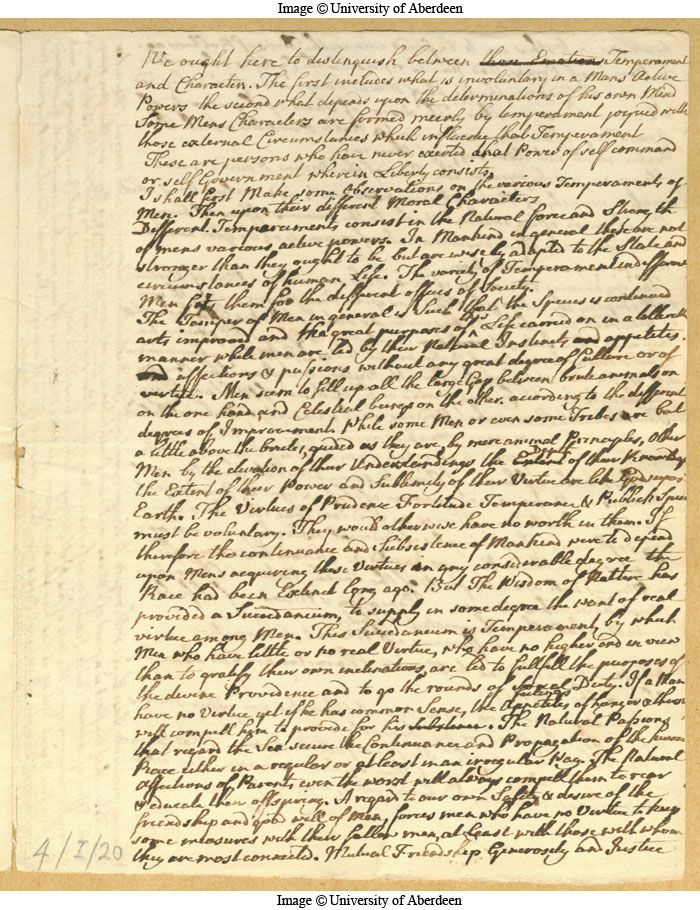 Image © University of Aberdeen
We ought here to distinguish between those Emotions Temperament
and Character. The first includes what is involuntary in a Mans Active
Powers the second what depends upon the determinations of his own Mind
Some Mens Characters are formed meerly by temperament joyned with
those external Circumstances which influence that Temperament
These are persons who have never exerted that Power of self command
or self Government wherein Liberty consists,
I shall first Make some Observations on the various Temperaments of
Men. Then upon their different Moral Characters
Different Temperaments consist in the Natural force and Strength
of mens various active powers. In Mankind in general these are not
stronger than they ought to be but are wisely adapted to the State and
circumstances of human Life. The variety of Temperament in different
Men fits them for the different offices of Society.
The Temper of Men in general is Such that the Species is continued
arts improved and the great purposes of this Life carried on in a tollerable
manner while men are led by their Natural Instincts and appetites
and affections & passions without any great degree of Culture or of
vertue. Men seem to fill up all the large Gap between brute animals on
on the one hand and Celestial beings on the other. according to the different
degrees of Improvement. While some Men or even some Tribes are but
a little above the brutes, guided as they are by mere animal Principles, Other
Men by the elevation of their Understandings the Extent of their Knowledge
the Extent of their Power and Sublimity of their Virtue are like Gods upon
Earth. The Virtues of Prudence Fortitude Temperance & Publick Spirit
must be voluntary. They would otherwise have no worth in them. If
therefore the continuance and Subsistence of Mankind were to depend
upon Mens acquiring these Virtues in any considerable degree the
Race had been Extinct long ago. But The Wisdom of Nature has
provided a Succedaneum, to supply in some degree the want of real
virtue among Men. This Succedaneum is Temperament, by which
Men who have little or no real Virtue, who have no higher end in view
than to gratify their own inclinations are led to fullfill the purposes of
the divine Providence and to go the rounds of social Duty. If a Man
have no Virtue yet if he has common Sense, the Appetites of hunger & thirst
will compell him to provide for his Subsistence. The Natural Passions
that regard the Sex secure the Continuance and Propagation of the human
Race either in a regular or at least in an irregular Way. The Natural
affections of Parents even the worst will always compell them to rear
& educate their offspring. A regard to our own Safety & desire of the
friendship and good will of Men, forces men who have no Virtue to keep
some measures with their fellow men, at Least with those with whom
they are most connected. Mutual Friendship Generosity and Justice
4/I/20
Image © University of Aberdeen